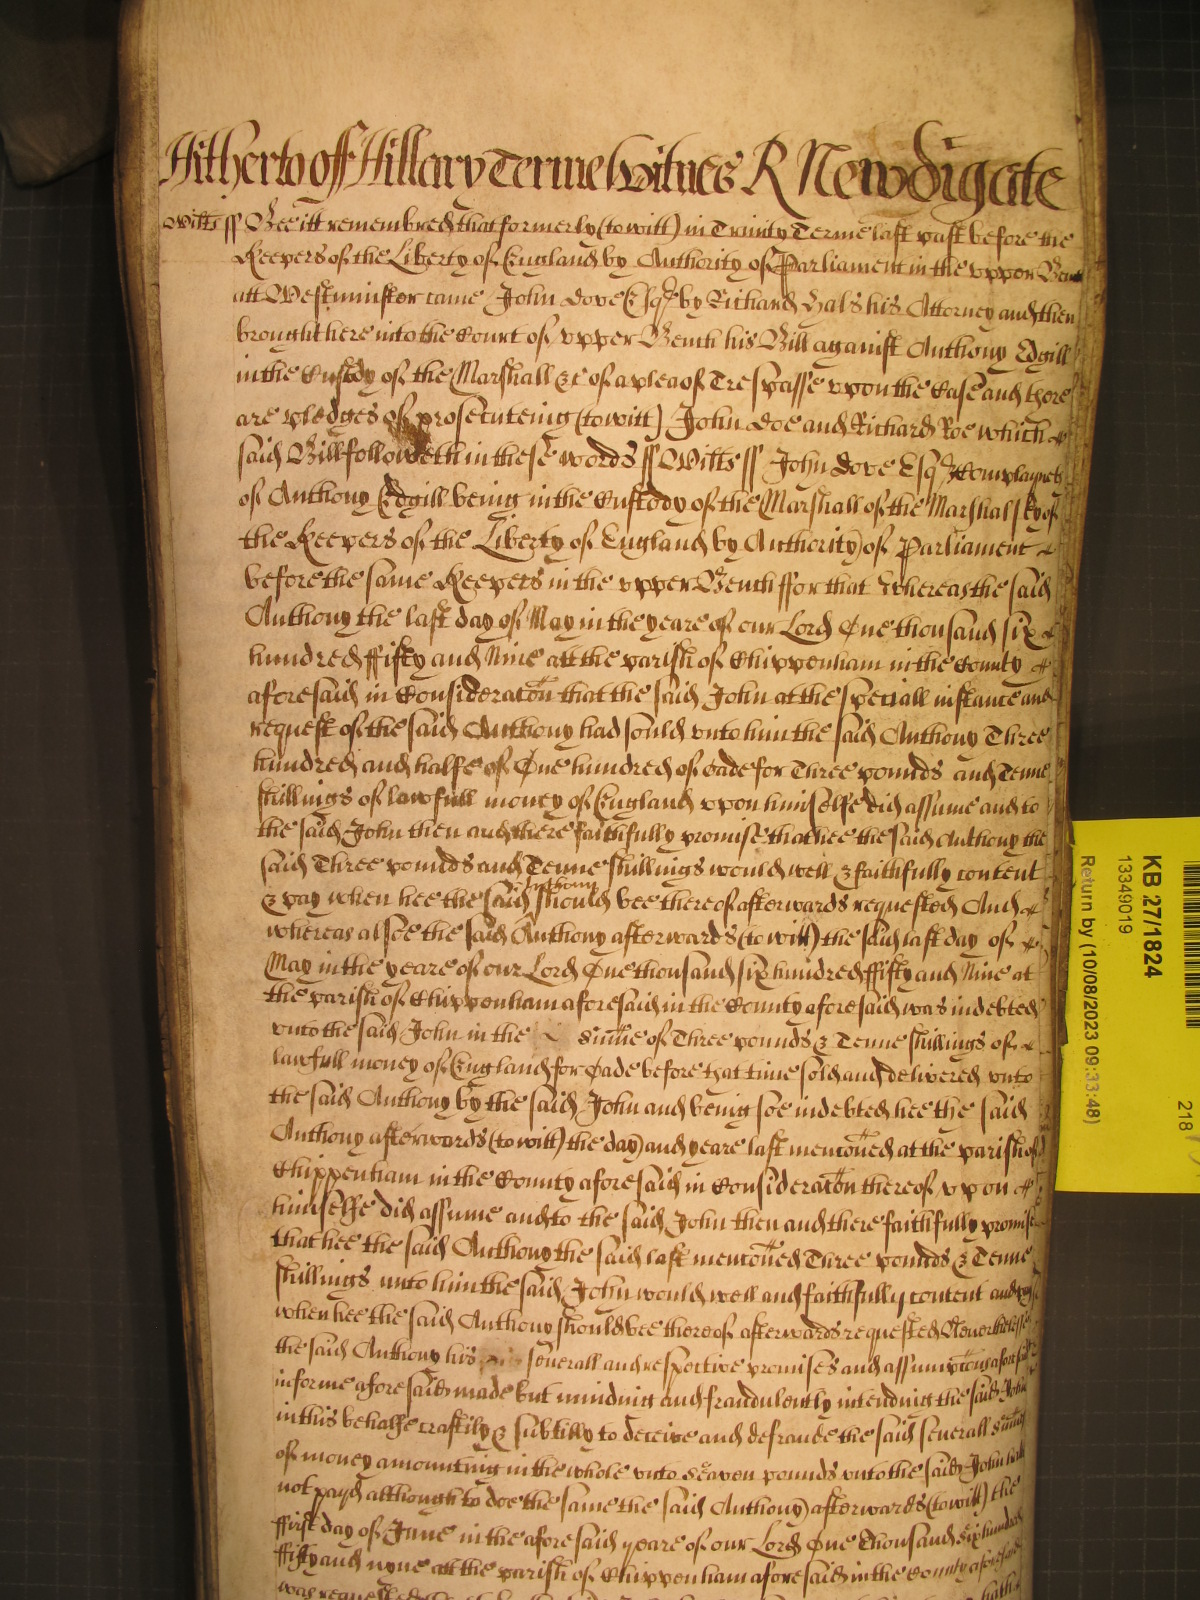 Hitherto off Hillary Terme Witnes R Newdigate
Wilts ss Bee itt remembred that formerly (to witt) in Trinity Terme last past before the
Keepers of the Liberty of England by Authority of Parliament in the upper Bench
att Westminster came John Dove Esqr by Richard Hals his Attorney and then
brought here into the Court of upper Bench his Bill against Anthony Edgill
in the Custody of the Marshall &c of a plea of Trespasse upon the Case and there
are pledges of prosecuteing (to witt) John Doe and Richard Roe which
said Bill followeth in these words ss Wilts ss John Dove Esqr Complayneth
of Anthony Edgill being in the Custody of the Marshall of the Marshalsey of
the Keepers of the Liberty of England by Authority of Parliament
before the same Keepers in the upper Bench ffor that Whereas the said
Anthony the last day of May in the yeare of our Lord One thousand six
hundred ffifty and Nine att the parish of Chippenham in the County
aforesaid in Consideracon that the said John at the speciall instance and
request of the said Anthony had sould unto him the said Anthony Three
hundred and halfe of One hundred of Oade for Three pounds and Tenne
shillings of lawfull money of England upon himselfe did assume and to
the said John then and there faithfully promise that hee the said Anthony the
said Three pounds and Tenne shillings would well & faithfully content
& pay when hee the said Anthony should bee thereof afterwards requested And
whereas alsoe the said Anthony afterwards (to witt) the said last day of
May in the yeare of our Lord One thousand six hundred ffifty and Nine at
the parish of Chippenham aforesaid in the County aforesaid was indebted
unto the said John in the Summe of Three pounds & Tenne shillings of
lawfull money of England for Oade before that time sold and delivered unto
the said Anthony by the said John and being soe indebted hee the said
Anthony afterwards (to witt) the day and yeare last menconed at the parish of
Chippenham in the County aforesaid in Consideracon thereof upon
himselfe did assume and to the said John then and there faithfully promise
that hee the said Anthony the said last menconed Three pounds & Tenne
shillings unto him the said John would well and faithfully content and pay
when hee the said Anthony should bee thereof afterwards requested Neverthelesse
the said Anthony his severall and respective promises and assumpcons aforesaid
in forme aforesaid made but minding and fraudulently intending the said John
in this behalfe craftily & subtilly to deceive and defraude the said severall Summes
of money amounting in the whole unto Seaven pounds unto the said John hath
not payd although to doe the same the said Anthony afterwards (to witt) the
ffirst day of June in the aforesaid yeare of our Lord One thousand six hundred
ffifty and nyne att the parish of Chippenham aforesaid in the County aforesaid
was requested
KB 27/1824
13349019
218
Return by (10/08/2023 09:33:48)